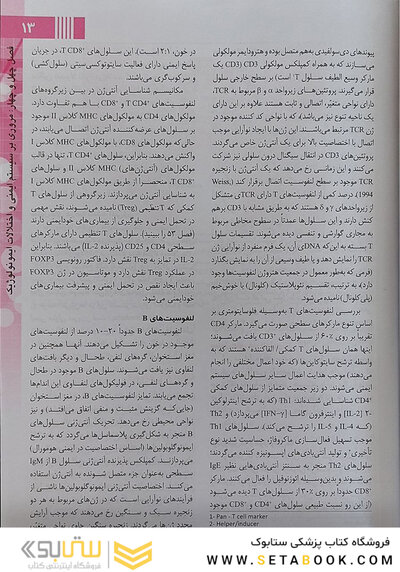 ۱۳
فصل چهل و چهار: مروری بر سیستم ایمنی و اختلالات ایمونولوژیک
پیوندهای دی‌سولفیدی به‌هم متصل بوده و هترودیمر مولکولی
می‌سازند که به همراه کمپلکس مولکولی CD3 (CD3 یک
مارکر وسیع الطیف سلول T¹ است) بر سطح خارجی سلول
قرار می‌گیرند. پروتئین‌های زیرواحد α و β مربوط به TCR،
دارای نواحی متغیر، اتصالی و ثابت هستند علاوه بر این دارای
یک ناحیه تنوع نیز می‌باشد که با نواحی کد کننده موجود در
ژن TCR مرتبط می‌باشند. این ژن‌ها با ایجاد نوآرایی موجب
اتصال با اختصاصیت بالا برای یک آنتی‌ژن خاص می‌گردند.
پروتئین‌های CD3 در انتقال سیگنال درون سلولی نیز شرکت
می‌کنند و این زمانی رخ می‌دهد که یک آنتی‌ژن با زنجیره
TCR موجود بر سطح لنفوسیت اتصال برقرار کند (Weiss,
1994). درصد کمی از لنفوسیت‌های T دارای TCRی متشکل
از پروتئین‌های γ و δ هستند که به طریق مشابه با CD3 برهم
کنش دارند و این سلول‌ها عمدتاً در سطوح مخاطی مربوط
به مجاری گوارشی و تنفسی دیده می‌شوند. تقسیمات سلول
T بسته به این‌که DNAی آن، یک فرم منفرد از نوآرایی ژن
TCR را نمایش دهد و یا طیف وسیعی از آن را به نمایش گذارد
(فرمی که به‌طور معمول در جمعیت هتروژن لنفوسیت‌ها وجود
دارد)، به ترتیب، تقسیم نئوپلاستیک (کلونال) یا خوش‌خیم
(پلی کلونال) نامیده می‌شود.
بررسی لنفوسیت‌های T به‌وسیله فلوسایتومتری بر
اساس تنوع مارکرهای سطحی صورت می‌گیرد. مارکر CD4
تقریباً بر روی ۶۰٪ از سلول‌های CD3⁺ یافت می‌شوند؛
اینها همان سلول‌های T کمکی/القاکننده² هستند که به
واسطه ترشح سایتوکاین‌ها (که خود اعمال مختلفی را انجام
می‌دهند) موجب هدایت اعمال سایر سلول‌های سیستم
ایمنی می‌شوند. دو زیر جمعیت متمایز از سلول‌های کمکی
CD4⁺ شناسایی شده‌اند: Th1 (که به ترشح اینترلوکین
۲- [IL-2] و اینترفرون گاما [IFN-γ] می‌پردازد) و Th2
(که IL-4 و IL-5 را ترشح می‌کند). سلول‌های Th1
موجب تسهیل فعال‌سازی ماکروفاژ، حساسیت شدید نوع
تأخیری و تولید آنتی‌بادی‌های اپسونیزه کننده می‌گردند؛
سلول‌های Th2 منجر به سنتز آنتی‌بادی‌هایی نظیر IgE
می‌شوند و بدین‌وسیله ائوزینوفیل را فعال می‌کنند. مارکر
CD8 حدوداً بر روی ۳۰٪ از سلول‌های T دیده می‌شود
(از این رو نسبت طبیعی سلول‌های CD4⁺ به CD8⁺ موجود
1- Pan - T cell marker
2- Helper/inducer
در خون، ۲:۱ است). این سلول‌های T CD8⁺، در جریان
پاسخ ایمنی دارای فعالیت سایتوتوکسیسیتی (سلول‌کشی)
و سرکوب‌گری می‌باشند.
مکانیسم شناسایی آنتی‌ژن در بین زیرگروه‌های
لنفوسیت‌های T CD4⁺ و CD8⁺ با هم تفاوت دارد.
مولکول‌های CD4 به مولکول‌های MHC کلاس II موجود
بر سلول‌های عرضه‌کننده آنتی‌ژن اتصال می‌یابند، در
حالی که مولکول‌های CD8 با مولکول‌های MHC کلاس I
واکنش می‌دهند. بنابراین، سلول‌های T CD4⁺، تنها در قالب
مولکول‌های (آنتی‌ژن‌های) MHC کلاس II و سلول‌های
T CD8⁺، منحصراً از طریق مولکول‌های MHC کلاس I
به شناسایی آنتی‌ژن می‌پردازند. زیرگروهی از سلول‌های T
کمکی که T تنظیمی (Treg) نامیده می‌شوند، نقش مهمی
در تحمل ایمنی و جلوگیری از بیماری‌های خودایمنی دارند
(فصل ۵۳ را ببینید). سلول‌های T تنظیمی دارای مارکرهای
سطحی CD4 و CD25 (پذیرنده IL-2) می‌باشند. بنابراین
IL-2 در تمایز به Treg نقش دارد. فاکتور رونویسی FOXP3
در عملکرد Treg نقش دارد و موتاسیون در ژن FOXP3
باعث ایجاد نقص در تحمل ایمنی و پیشرفت بیماری‌های
خودایمنی می‌شود.
لنفوسیت‌های B
لنفوسیت‌های B حدوداً ۲۰-۱۰ درصد از لنفوسیت‌های
موجود در خون را تشکیل می‌دهند. آنها همچنین در
مغز استخوان، گره‌های لنفی، طحال و دیگر بافت‌های
لنفاوی نیز یافت می‌شوند. سلول‌های B موجود در طحال
و گره‌های لنفی، در فولیکول‌های لنفاوی این اندام‌ها
تجمع می‌یابند. تمایز لنفوسیت‌های B، در مغز استخوان
(جایی که گزینش مثبت و منفی اتفاق می‌افتد)، و نیز
نواحی محیطی رخ می‌دهد. تحریک آنتی‌ژنی سلول‌های
B منجر به شکل‌گیری پلاسماسل‌ها می‌گردد که به ترشح
ایمونوگلوبولین‌ها (اساس اختصاصیت در ایمنی هومورال)
می‌پردازنـد. کمپلکس پذیرنده آنتی‌ژنی سلول B از IgM
سطحی به‌عنوان جزء متصل شونده به آنتی‌ژن استفاده
می‌کند. اختصاصیت آنتی‌ژنی ایمونوگلوبولین‌ها ناشی از
فرآیندهای نوآرایی است که در ژن‌های مربوط به هر دو
زنجیره سبک و سنگین رخ می‌دهند که موجب آرایش
مجدد ژن‌ها می‌گردند. زنجیره سنگین حاوی نواحی متغیر،
فروشگاه کتاب پزشکی ستابوک
WWW.SETABOOK.COM
ستابوک
فروشگاه اینترنتی کتاب